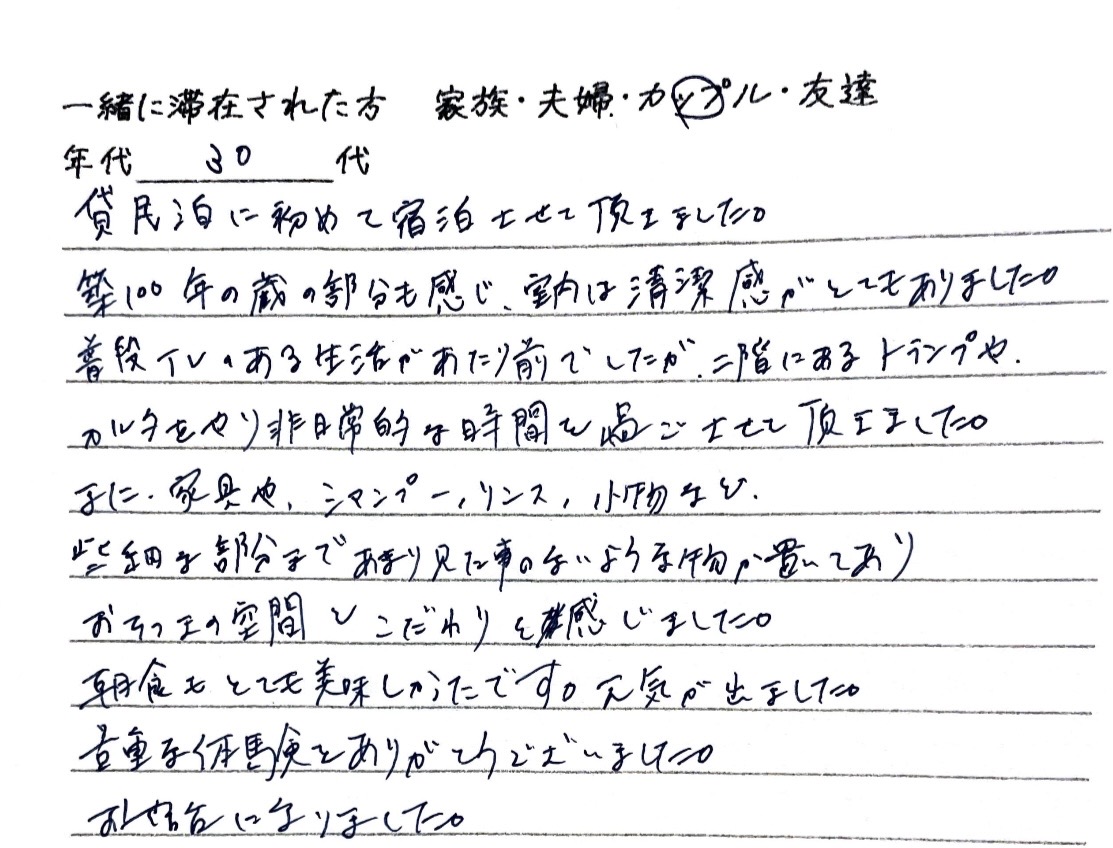 一緒に滞在された方 家族・夫婦・カップル・友達
年代 30 代
貸民泊に初めて宿泊させて頂きました。
築100年の蔵の部分も感じ、室内は清潔感がとてもありました。
普段TVのある生活があたり前でしたが、二階にあるトランプや、
カルタをやり非日常的な時間を過ごさせて頂きました。
また、家具や、シャンプー、リンス、小物など、
些細な部分まであまり見た事のないような物が置いてあり
空間とこだわりを感じました。
朝食もとても美味しかったです。元気が出ました。
貴重な体験をありがとうございました。
お世話になりました。